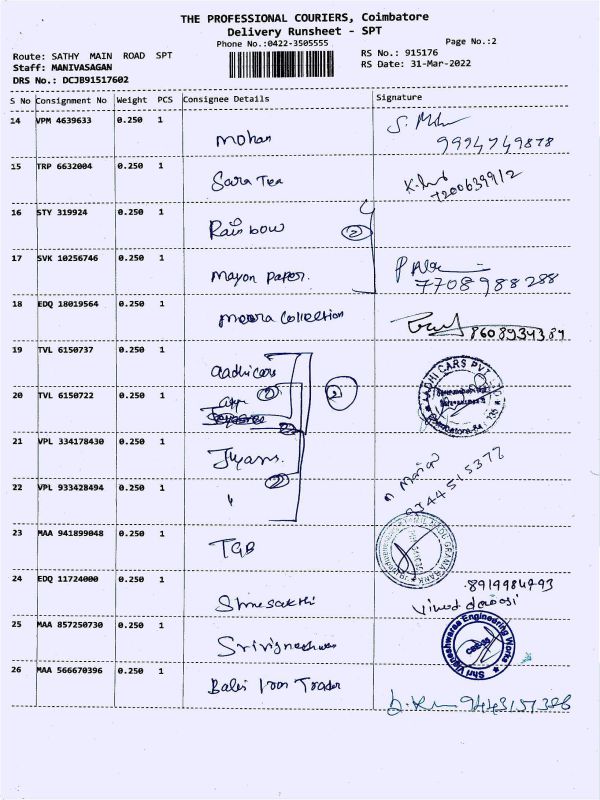 THE PROFESSIONAL COURIERS, Coimbatore
Delivery Runsheet - SPT
Phone No.:0422-3505555
Page No.:2
Route: SATHY MAIN ROAD SPT
RS No.: 915176
Staff: MANIVASAGAN
RS Date: 31-Mar-2022
DRS No.: DCJB91517602
S No Consignment No Weight PCS Consignee Details Signature
14 VPM 4639633 0.250 1 Mohan
9994749878
15 TRP 6632004 0.250 1 Sara Tea
7200639912
16 STY 319924 0.250 1 Rainbow 2
17 SVK 10256746 0.250 1 Mayon Paper.
7708988288
18 EDQ 18019564 0.250 1 Meera Collection
8608934384
19 TVL 6150737 0.250 1 Aadhi cars
AADHI CARS PVT LTD
20 TVL 6150722 0.250 1 2
21 VPL 334178430 0.250 1
22 VPL 933428494 0.250 1 "
9344515377
23 MAA 941899048 0.250 1 TGB
24 EDQ 11724000 0.250 1 Shresakthi
8919984793
25 MAA 857250730 0.250 1 Srivigneshwar
Shri Vigneshwaraa Engineering Works
26 MAA 566670396 0.250 1 Balaji Iron Trader
9443157386